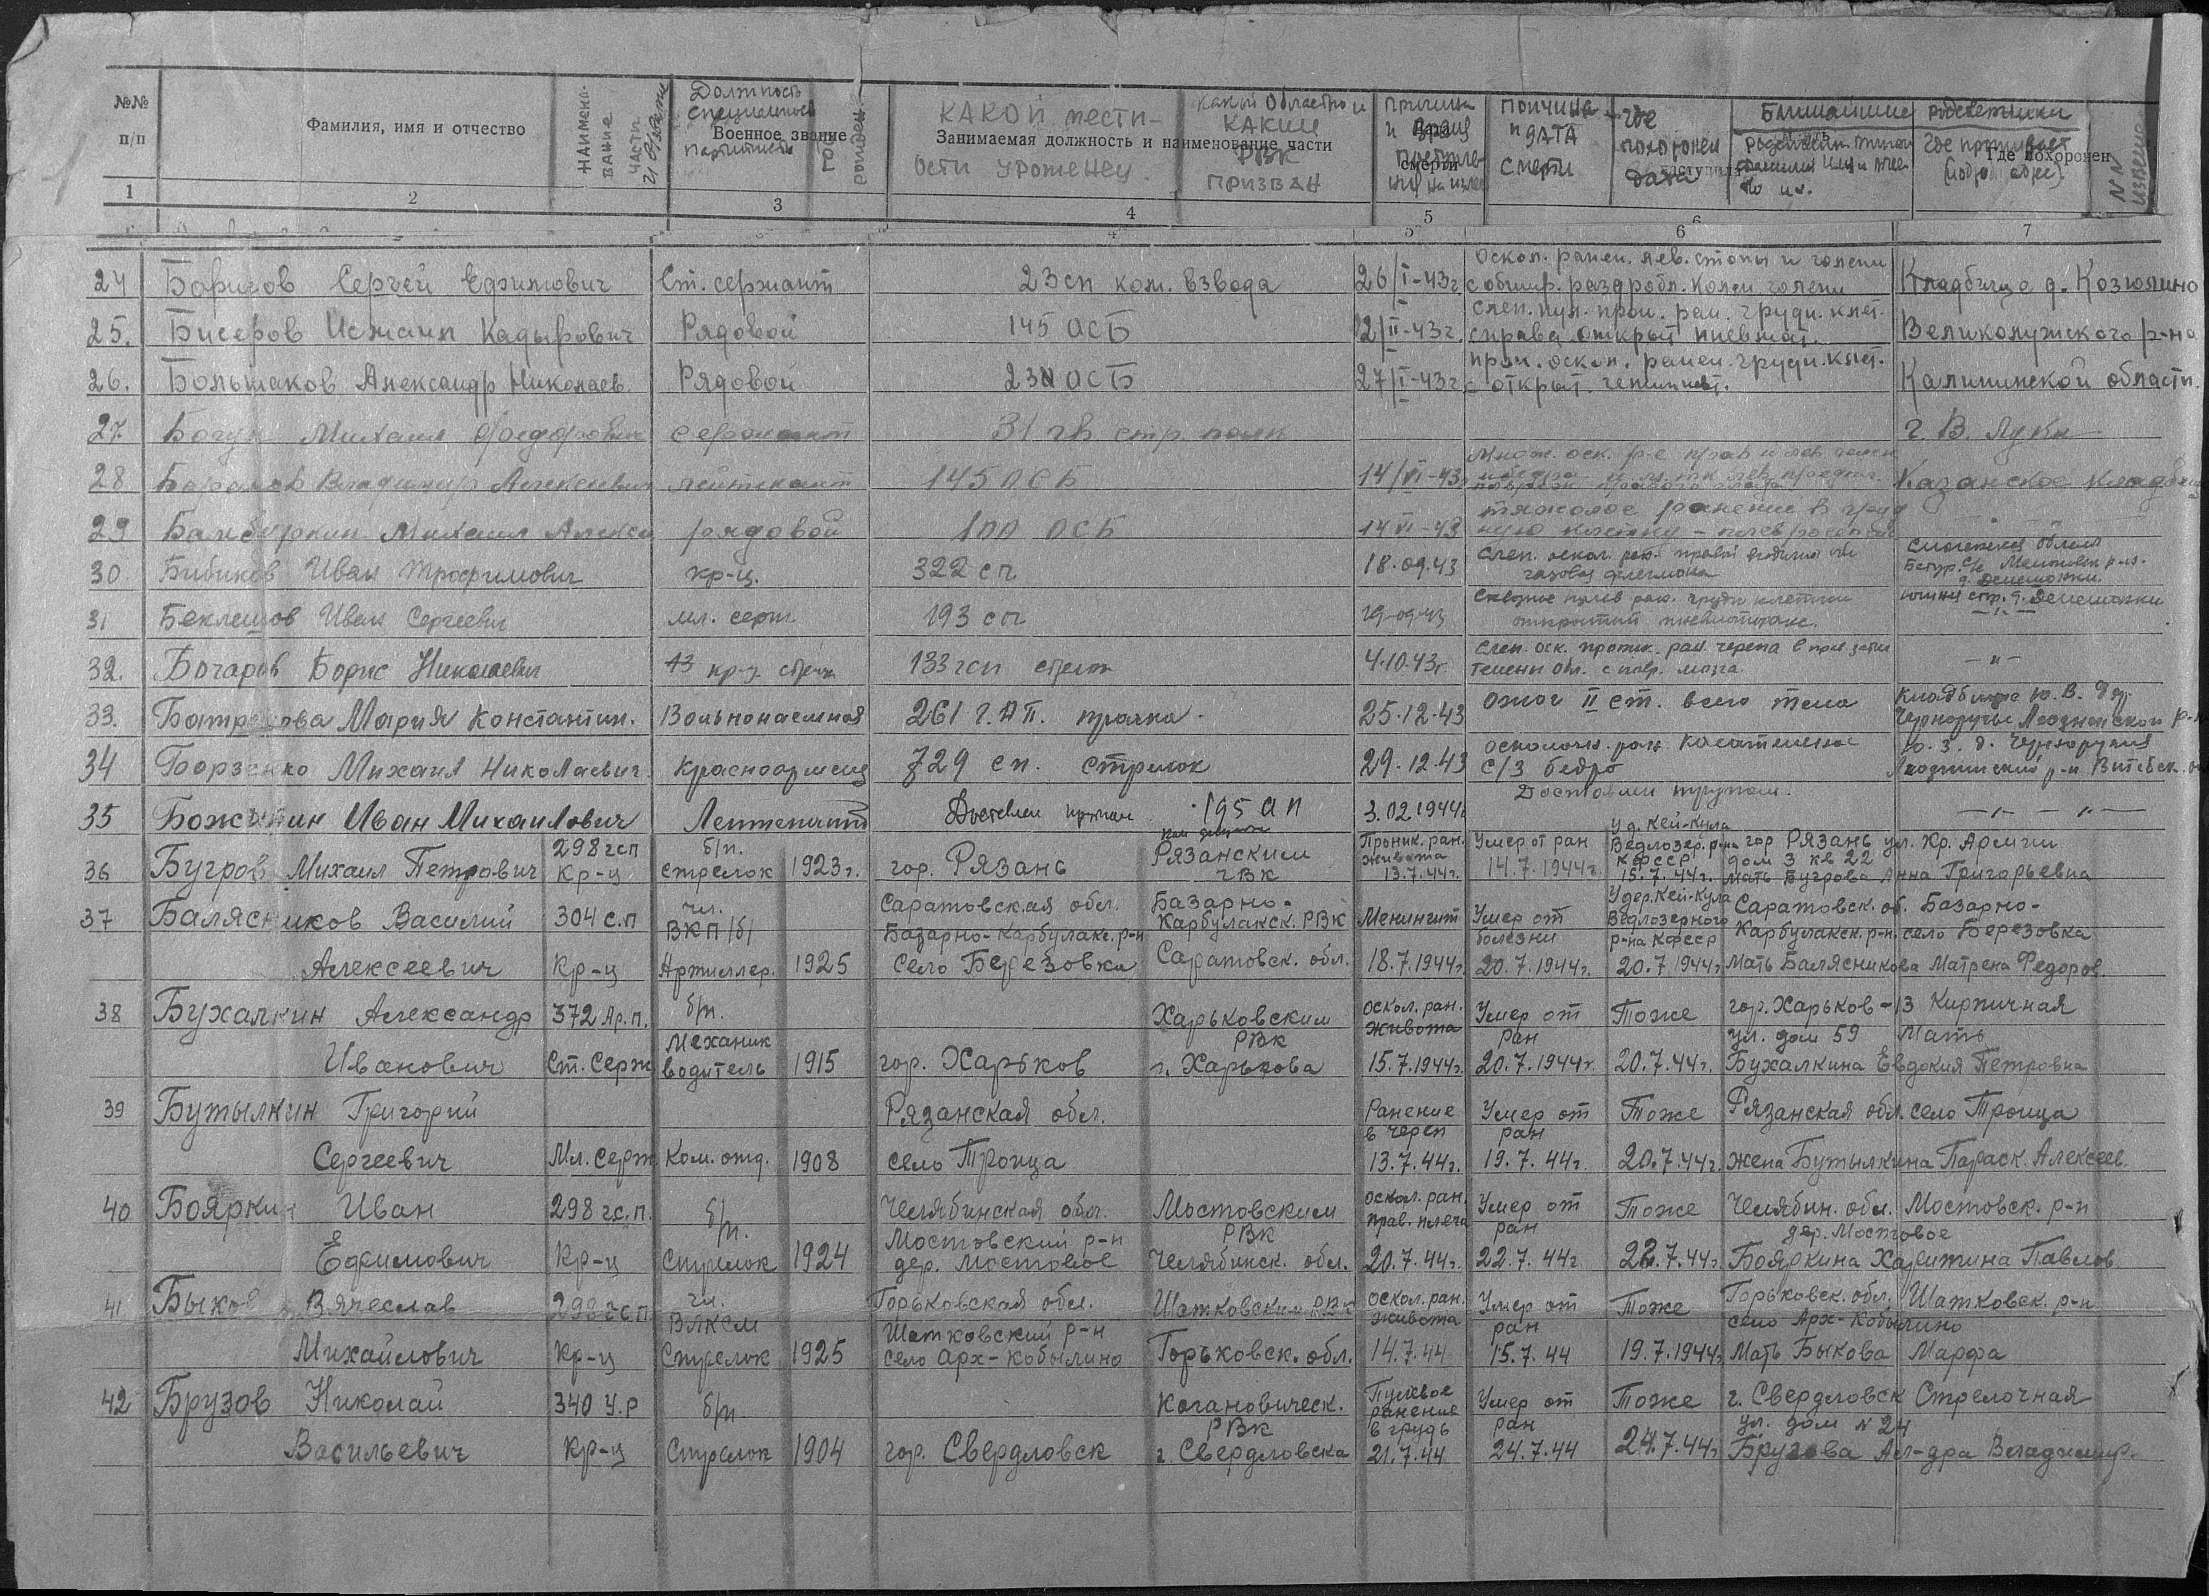 №№ п/п
Фамилия, имя и отчество
Наименование части и звание
Должность специальность партийность
Военное звание
год рожден.
КАКОЙ местности уроженец
Занимаемая должность и наименование части
какой Областью и каким РВК призван
причина и поступления на излеч.
смерти
причина и дата смерти
где похоронен дата
Ближайшие родственники
где проживает
Где похоронен
1 2 3 4 5 6 7
24 Борисов Сергей Ефимович Ст. сержант 23 сп ком. взвода 26/I-43г. Оскол. ранен. лев. стопы и голени с обшир. раздробл. голени Кладбище д. Козюлино
25. Бисеров Исмаил Кадырович Рядовой 145 ОСБ 2/II-43г. Слеп. пул. прон. ран. грудн. клет. справа открыт пневмот. Великолукского р-на
26. Большаков Александр Николаев. Рядовой ОСБ 27/I-43г. прон. оскол. ранен. грудн. клет. с открыт. Калининской области.
27 Михаил Федорович сержант 31 гв стр. полк г. В. Луки
28 Владимир Алексеевич лейтенант 145 ОСБ 14/VI-43 Множ. оск. р-е прав и лев Казанское кладбищ
29 Михаил Алексе рядовой 100 ОСБ 14 VI-43 тяжелое ранение в грудную клетку – — " —
30 Бибиков Иван Трофимович кр-ц. 322 сп 18.09.43 Слеп. оскол. ран. правой газовая флегмона
31 Беклешов Иван Сергеевич мл. серж. 193 сп 19-09-43 ран. груди открытый пневмоторакс.
32. Бочаров Борис Николаевич кр-ц 133 гсп стрелк 4.10.43г. Слеп. оск. ран. черепа в прав. с повр. мозга. — " —
33. Мария Константин. Вольнонаемная 261 г.АП. прачка. 25.12.43 ожог II ст. всего тела Кладбище ю. В. дер. Черноручье Лиозненской р-н
34 Борзенко Михаил Николаевич. Красноармеец 729 сп. стрелок 29.12.43 осколочн. ран. касательное с/з бедра ю. з. д. р-н Витебск. о
35 Иван Михайлович Лейтенант Доставлен трупом 195 ап 3.02.1944г Доставлен трупом. — " — " —
36 Бугров Михаил Петрович 298 гсп Кр-ц б/п. стрелок 1923г. гор. Рязань Рязанским ГВК Проник. ран. живота 13.7.44г. Умер от ран 14.7.1944г. у д. Кей-Кула Ведлозер. р-на КФССР 15.7.44г. гор Рязань ул. Кр. Армии дом 3 кв 22 Мать Бугрова Анна Григорьевна
37 Балясников Василий 304 с.п чл. ВКП/б/ Саратовская обл. Базарно-Карбулакс. р-н Базарно-Карбулакск. РВК Менингит Умер от болезни У дер. Кей-Кула Ведлозерного р-на КФССР Саратовск. об. Базарно-Карбулакск. р-н. село Березовка
Алексеевич Кр-ц Артиллер. 1925 село Березовка Саратовск. обл. 18.7.1944г. 20.7.1944г. 20.7 1944г. Мать Балясникова Матрена Федоров.
38 Бухалкин Александр 372 Ар.п. б/п. Харьковским РВК оскол. ран. живота Умер от ран Тоже гор. Харьков-13 Кирпичная ул. дом 59 Мать
Иванович Ст. Серж Механик водитель 1915 гор. Харьков г. Харькова 15.7.1944г. 20.7.1944г. 20.7.44г. Бухалкина Евдокия Петровна
39 Бутылкин Григорий Рязанская обл. Ранение в череп Умер от ран Тоже Рязанская обл. село Троица
Сергеевич Мл. Серж Ком. отд. 1908 село Троица 13.7.44г. 19.7.44г. 20.7.44г. жена Бутылкина Параск. Алексеев.
40 Бояркин Иван 298 гс.п. б/п. Челябинская обл. Мостовский р-н Мостовским РВК оскол. ран. прав. плеча Умер от ран Тоже Челябин. обл. Мостовск. р-н дер. Мостовое
Ефимович Кр-ц Стрелок 1924 дер. Мостовое Челябинск. обл. 20.7.44г. 22.7.44г 22.7.44г. Бояркина Харитина Павлов.
41 Быков Вячеслав 298 гсп чл. ВЛКСМ Горьковская обл. Шатковский р-н Шатковским РВК оскол. ран. живота Умер от ран Тоже Горьковск. обл. Шатковск. р-н село Арх-Кобылино
Михайлович Кр-ц Стрелок 1925 село Арх-Кобылино Горьковск. обл. 14.7.44 15.7.44 19.7.1944г. Мать Быкова Марфа
42 Брузов Николай 340 У.Р б/п Когановическ. РВК Пулевое ранение в грудь Умер от ран Тоже г. Свердловск Стрелочная ул. дом № 24
Васильевич Кр-ц Стрелок 1904 гор. Свердловск г. Свердловска 21.7.44 24.7.44 24.7.44г Брузова Ал-дра Владимир.